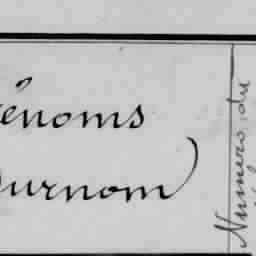 énoms
urnom)
Numéro du